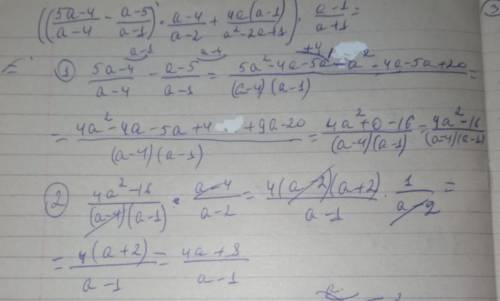 ((5a-4/a-4 - a-5/a-1) · a-4/a-2 + 4a(a-1)/a²-2a+1) · a-1/a+1 =
① 5a-4/a-4 - a-5/a-1 = 5a²-4a-5a+4-a²-4a-5a+20/(a-4)(a-1) =
= 4a²-4a-5a+4+9a-20/(a-4)(a-1) = 4a²+0-16/(a-4)(a-1) = 4a²-16/(a-4)(a-1)
② 4a²-16/(a-4)(a-1) · a-4/a-2 = 4(a-2)(a+2)/a-1 · 1/a-2 =
= 4(a+2)/a-1 = 4a+8/a-1